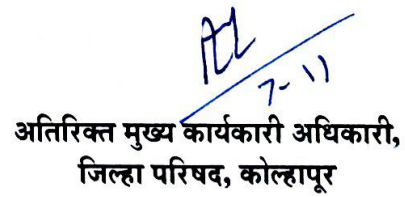 7-11
अतिरिक्त मुख्य कार्यकारी अधिकारी,
जिल्हा परिषद, कोल्हापूर